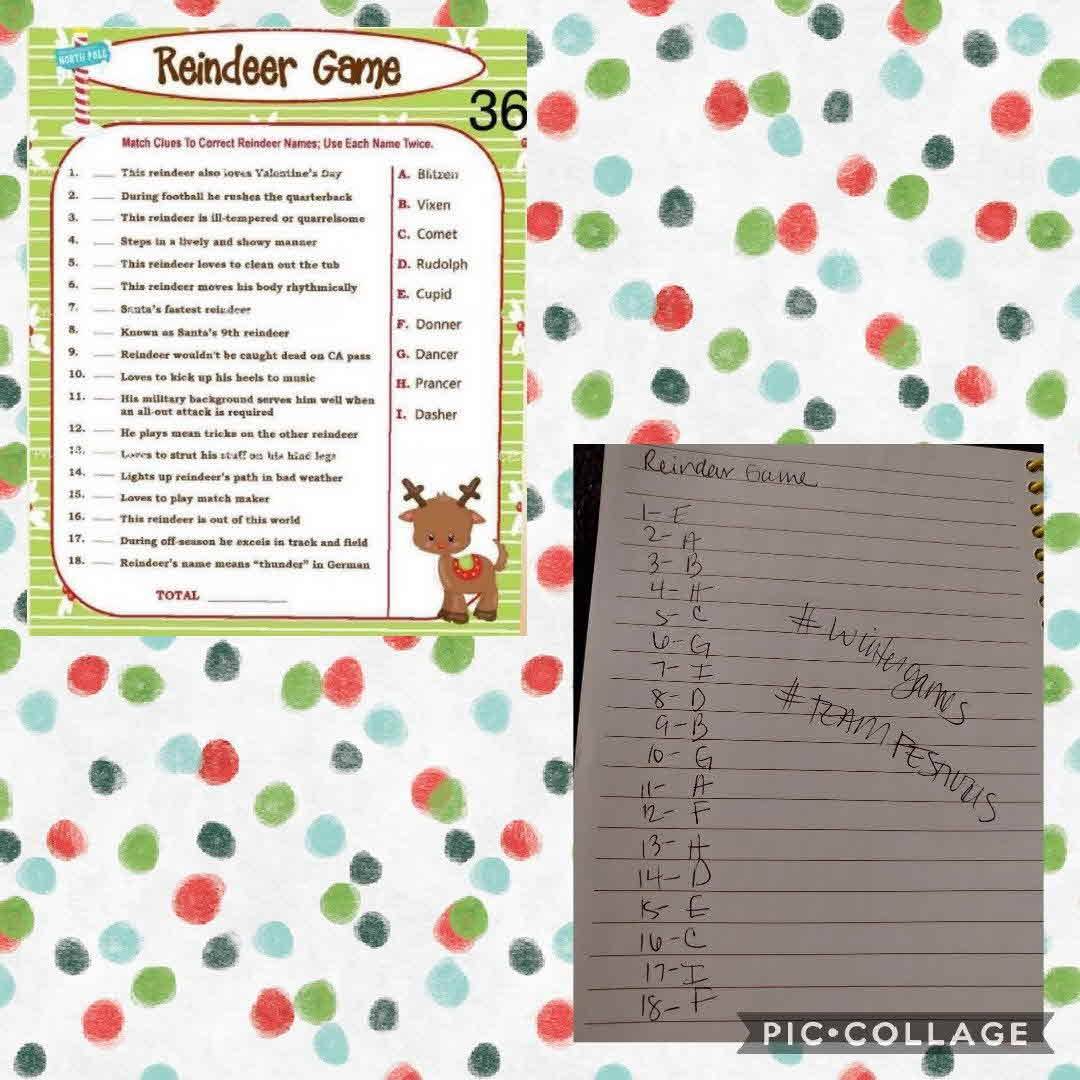 NORTH POLE
Reindeer Game
36
Match Clues To Correct Reindeer Names; Use Each Name Twice.
1. ___ This reindeer also loves Valentine's Day
2. ___ During football he rushes the quarterback
3. ___ This reindeer is ill-tempered or quarrelsome
4. ___ Steps in a lively and showy manner
5. ___ This reindeer loves to clean out the tub
6. ___ This reindeer moves his body rhythmically
7. ___ Santa's fastest reindeer
8. ___ Known as Santa's 9th reindeer
9. ___ Reindeer wouldn't be caught dead on CA pass
10. ___ Loves to kick up his heels to music
11. ___ His military background serves him well when
an all-out attack is required
12. ___ He plays mean tricks on the other reindeer
13. ___ Loves to strut his stuff on his hind legs
14. ___ Lights up reindeer's path in bad weather
15. ___ Loves to play match maker
16. ___ This reindeer is out of this world
17. ___ During off-season he excels in track and field
18. ___ Reindeer's name means "thunder" in German
TOTAL ___
A. Blitzen
B. Vixen
C. Comet
D. Rudolph
E. Cupid
F. Donner
G. Dancer
H. Prancer
I. Dasher
Reindeer Game
1- E
2- A
3- B
4- H
5- C
6- G
7- I
8- D
9- B
10- G
11- A
12- F
13- H
14- D
15- E
16- C
17- I
18- F
#wintergames
#TEAMFESTIVUS
PIC•COLLAGE